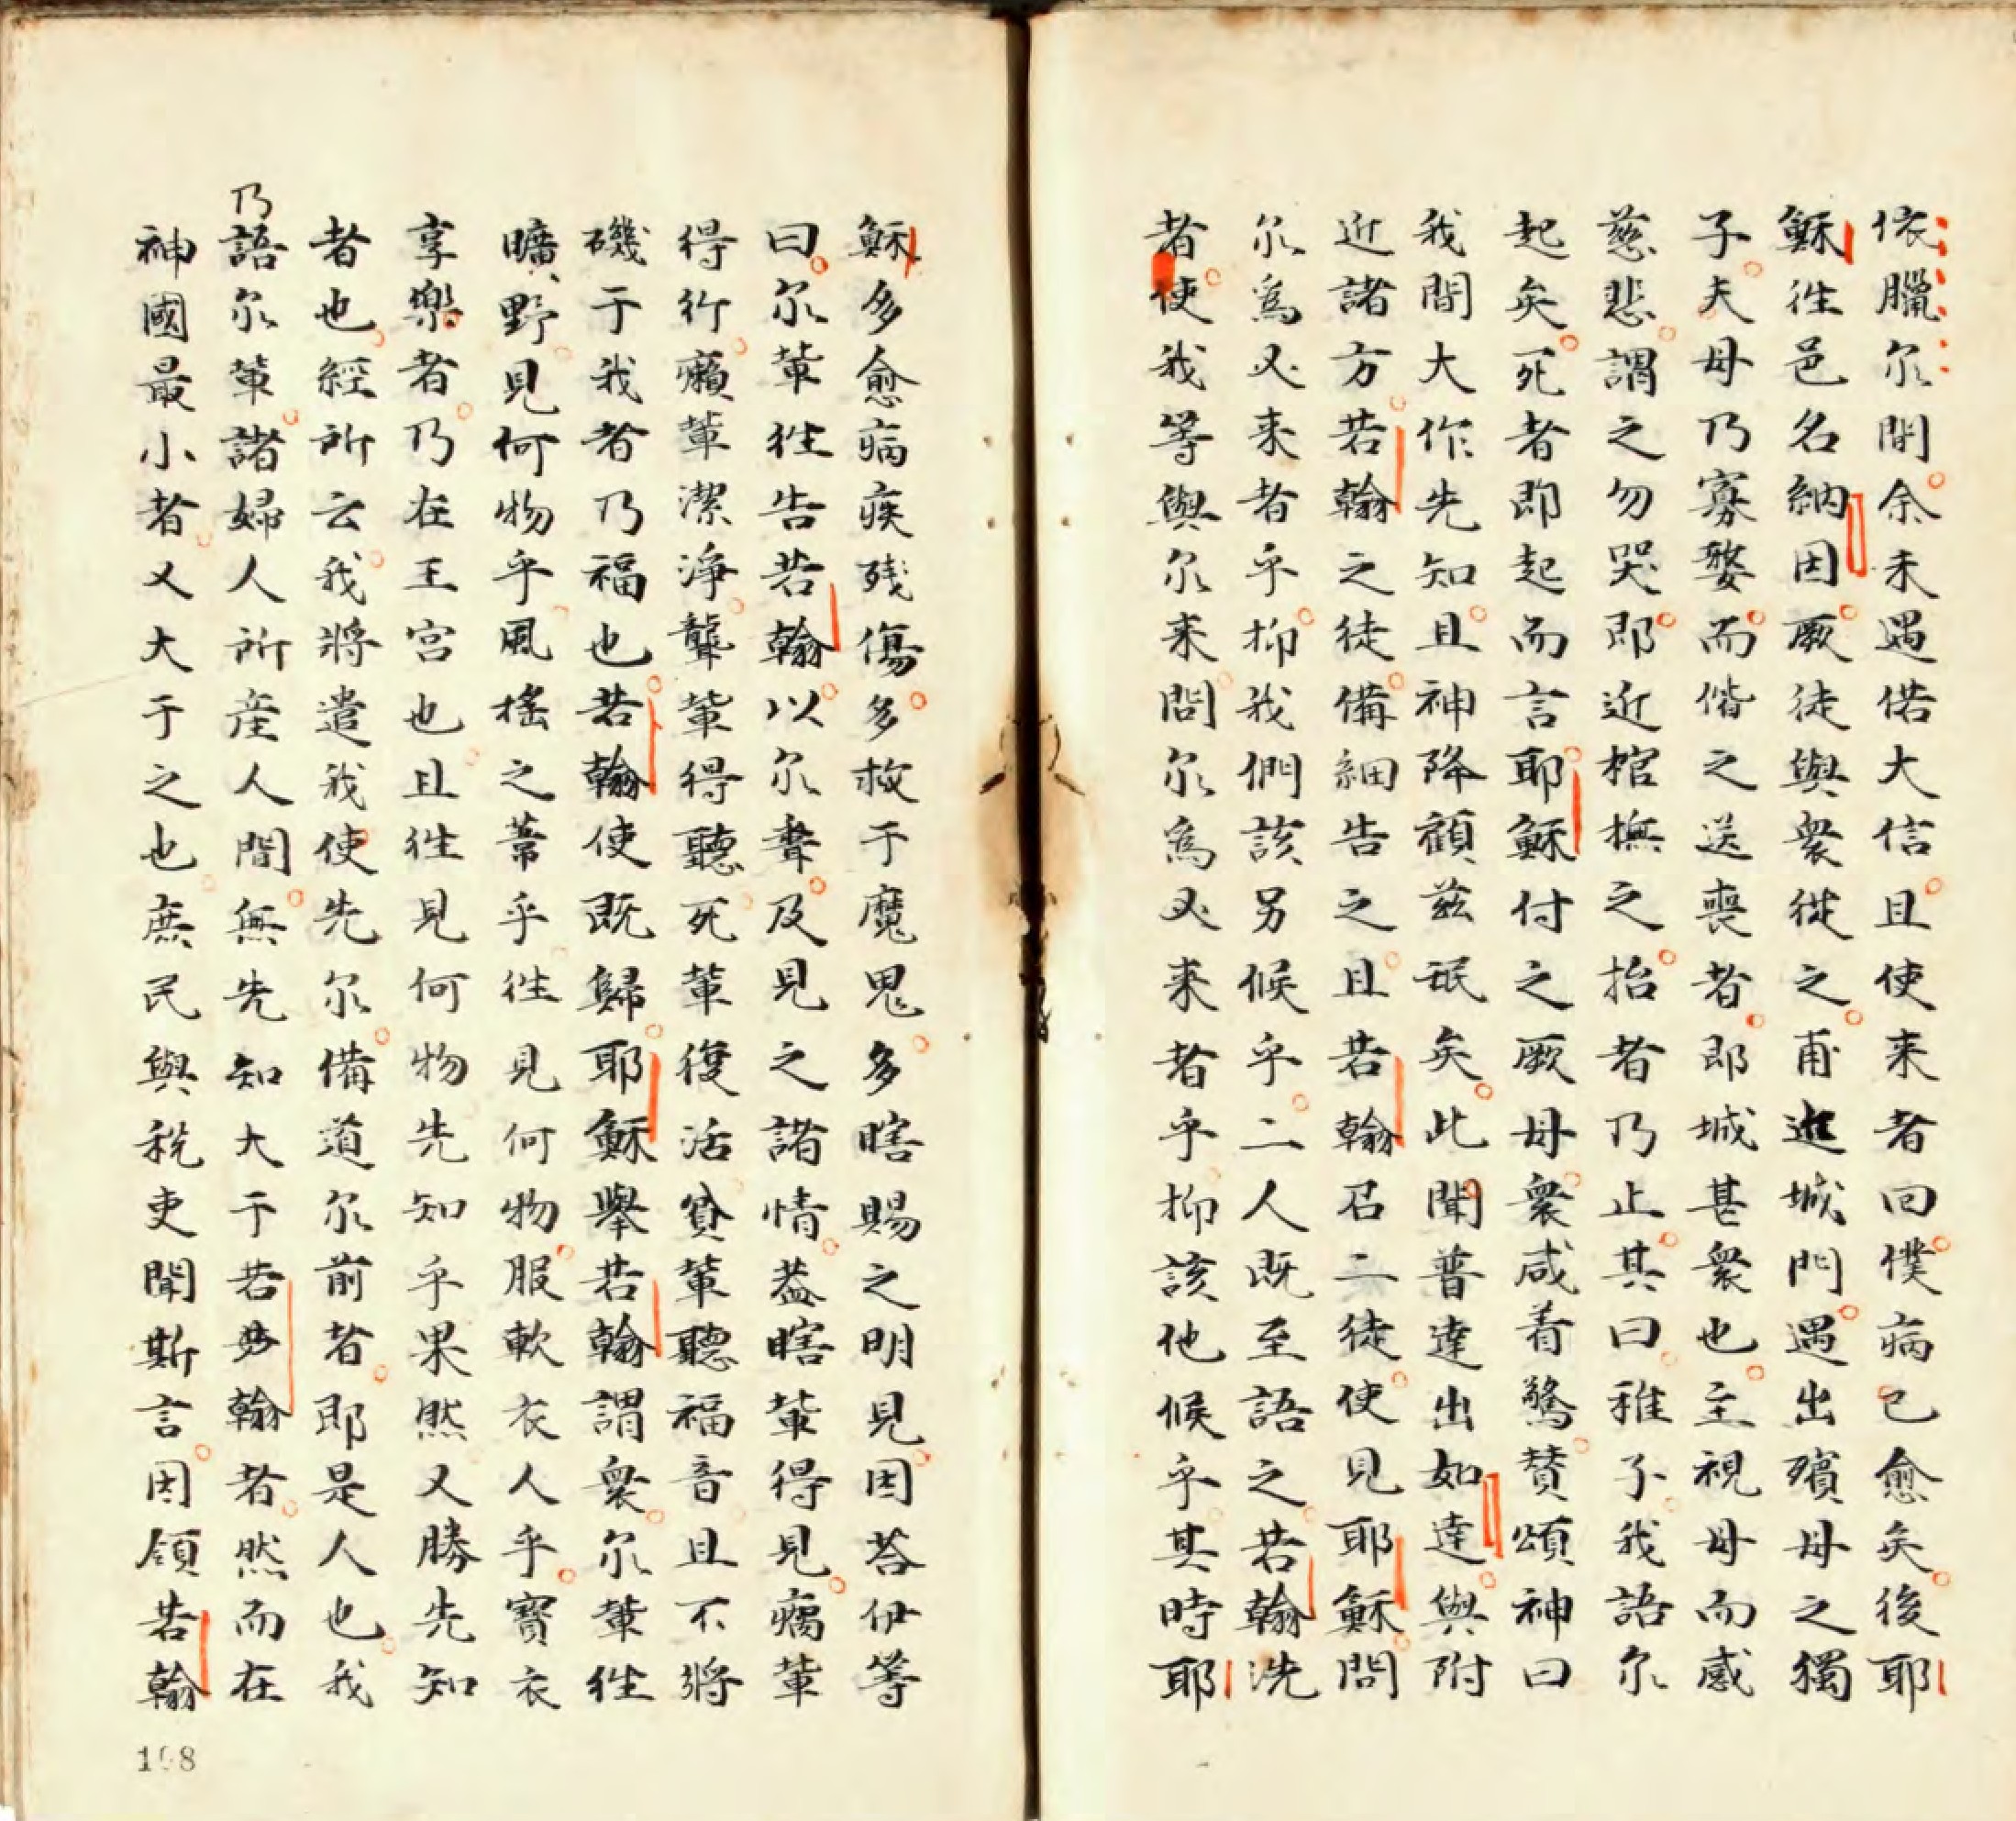 依臘尔間余未遇偌大信且使来者回僕病已愈矣後耶
穌徃邑名納因厥徒與衆従之甫迯城門遇出殯母之獨
子夫母乃寡婺而偕之送喪者即城甚衆也主視母而感
慈悲謂之勿哭即近棺撫之抬者乃止其曰稚子我語尔
起矣死者即起而言耶穌付之厥母衆咸着驚賛頌神曰
我間大作先知且神降顧兹氓矣此聞普達出如達與附
近諸方若翰之徒備細告之且若翰召二徒使見耶穌問
尔為必来者乎抑我們該另候乎二人既至語之若翰洗
者使我等與尔来問尔為必来者乎抑該他候乎其時耶
穌多愈病疾残傷多救于魔鬼多瞎賜之明見因荅伊等
曰尔軰徃告若翰以尔聋及見之諸情葢瞎軰得見瘸軰
得行癩軰潔淨聾軰得聽死軰復活貧軰聽福音且不將
磯于我者乃福也若翰使既歸耶穌舉若翰謂衆尔軰徃
曠野見何物乎風揺之葦乎徃見何物服軟衣人乎寳衣
享樂者乃在王宫也且徃見何物先知乎果然又勝先知
者也經所云我將遣我使先尔備道尔前者即是人也我
乃語尔軰諸婦人所産人間無先知大于若翰者然而在
神國最小者又大于之也庶民與税吏聞斯言因領若翰
198